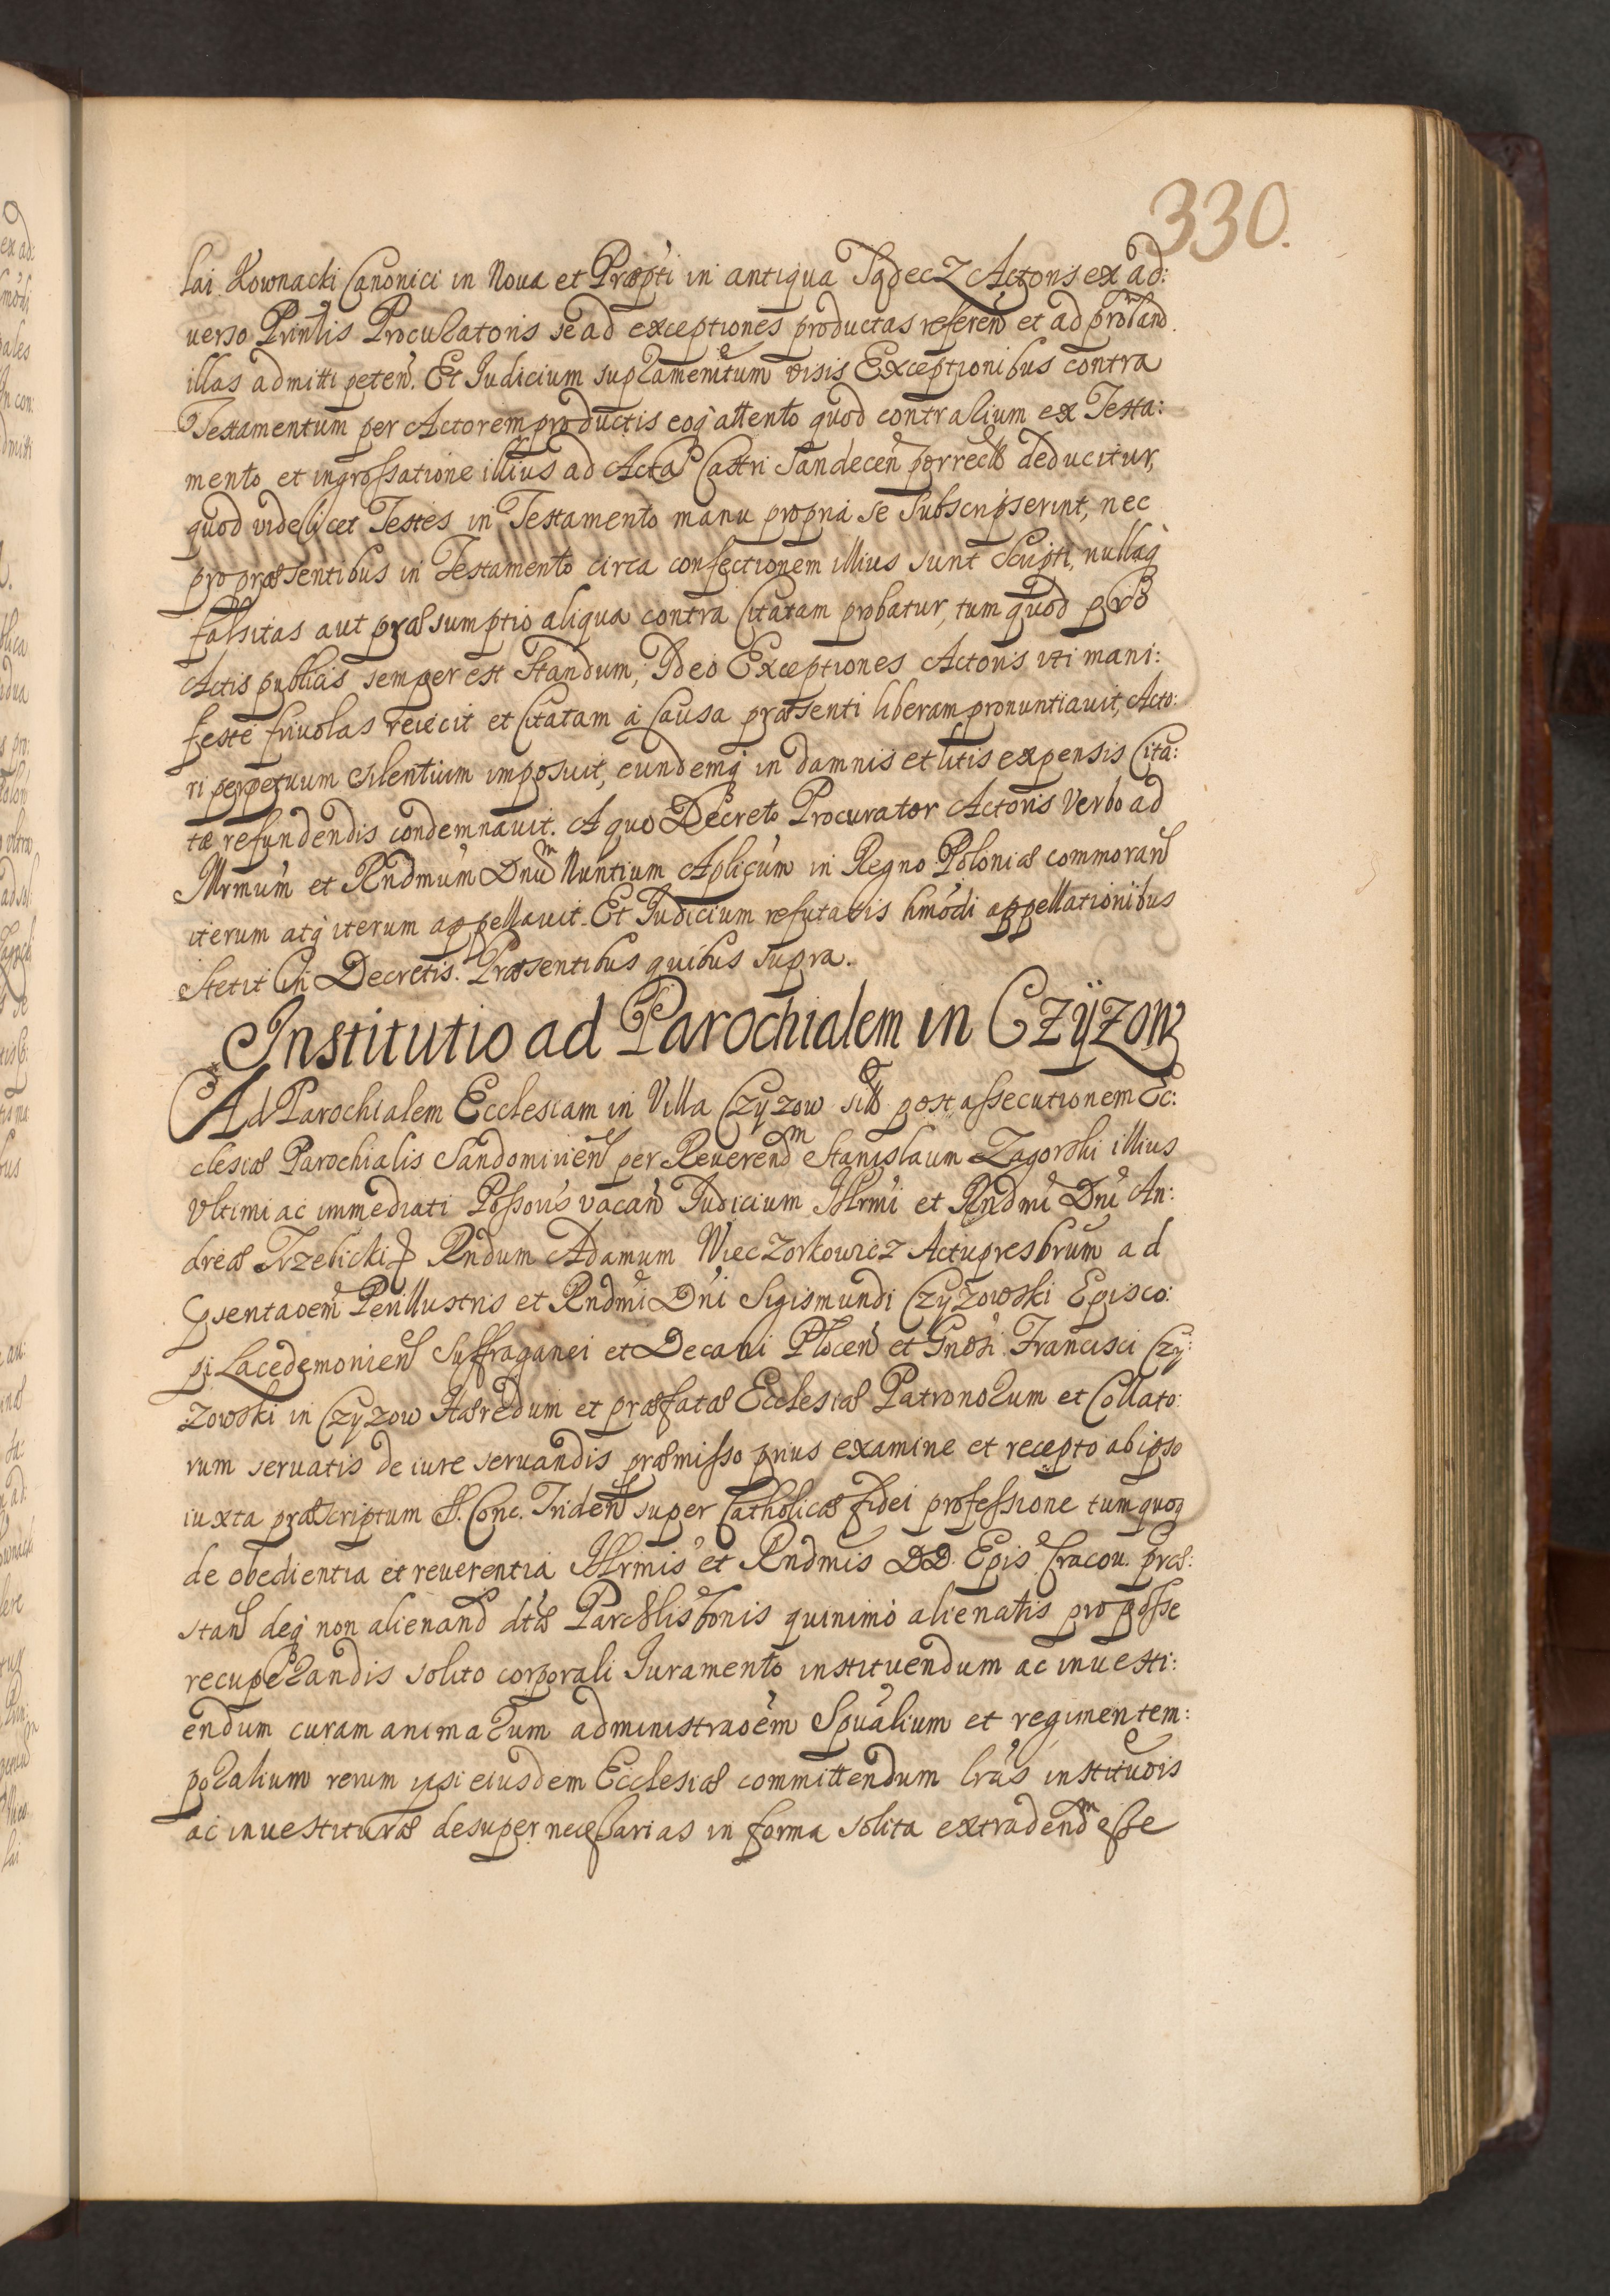 330.
lai Kownacki Canonici in Noua et Præpti in antiqua Sądecz Actoris ex ad:
verso Prinlis Procuratoris se ad exceptiones productas referen et ad proband
illas admitti peten. Et Judicium supramemtum visis Exceptionibus contra
Testamentum per Actorem productis eoq attento quod contrarium ex Testa:
mento et ingrossatione illius ad Acta Castri Sandecen porrecto deducitur,
quod videlicet Testes in Testamento manu propria se subscripserint, nec
pro præsentibus in Testamento circa confectionem illius sunt scripti, nullaq
falsitas aut præsumptio aliqua contra Citatam probatur, tum quod pro
Actis publicis semper est standum; Ideo Exceptiones Actoris uti mani:
feste friuolas reiecit et Citatam à Causa præsenti liberam pronuntiauit, Acto:
ri perpetuum silentium imposuit, eundemq in damnis et litis expensis Cita:
tæ refundendis condemnauit. A quo Decreto Procurator Actoris Verbo ad
Illrmum et Rndmum Dnum Nuntium Aplicum in Regno Poloniæ commoran
iterum atq iterum appellauit. Et Judicium refutatis hmodi appellationibus
stetit in Decretis. Præsentibus quibus supra.
Institutio ad Parochialem in Czÿzow
Ad Parochialem Ecclesiam in Villa Czyzow post assecutionem Ec:
clesiæ Parochialis Sandomirien per Reuerendm Stanislaum Zagorski illius
Vltimi ac immediati Possoris vacan Judicium Illrmi et Rndmi Dni An:
dreæ Trzebicki Rndum Adamum Wieczorkowicz Actupresbrum ad
psentaoem Perillustris et Rndmi Dni Sigismundi Czyzowski Episco:
pi Lacedemonien Suffraganei et Decani Plocen et Gnosi Francisci Czy:
zowski in Czyzow Hæredum et præfatæ Ecclesiæ Patronorum et Collato:
rum seruatis de iure seruandis præmisso prius examine et recepto ab ipso
iuxta præscriptum S. Conc. Triden super Catholicæ fidei professione tum quoq
de obedientia et reuerentia Illrmis et Rndmis DD. Epis Cracou. præ:
stan deq non alienand dtæ Parchlis bonis quinimo alienatis pro posse
recuperandis solito corporali Iuramento instituendum ac inuesti:
endum curam animarum administraoem Spualium et regimen tem:
poralium rerum ipsi eiusdem Ecclesiæ committendum lras instituois
ac inuestituræ desuper necessarias in forma solita extradendm esse